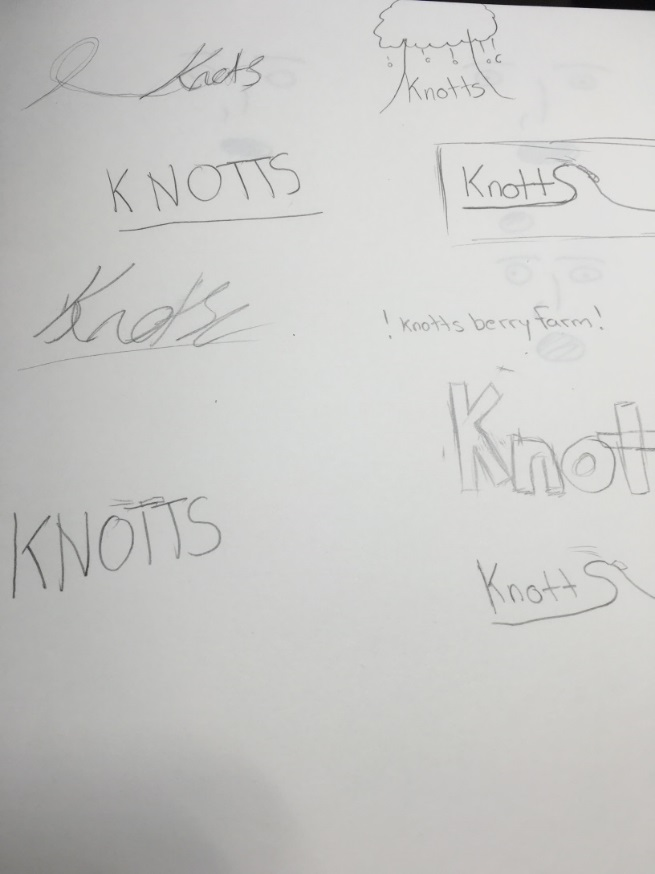 Knotts
Knotts
KNOTTS
KnottS
Knotts
! Knotts berry farm!
Knott
KNOTTS
KnottS